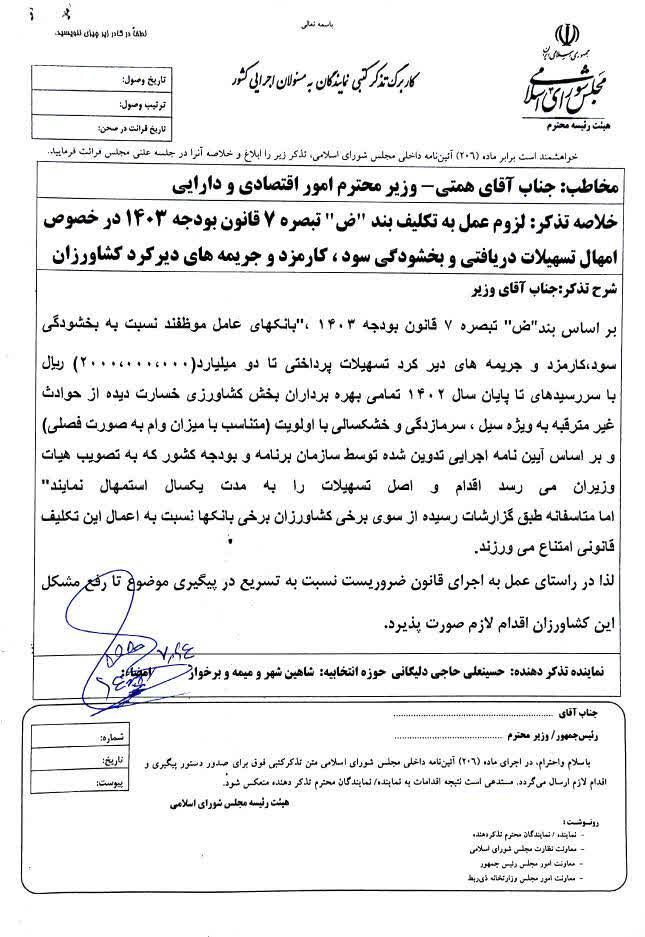 باسمه تعالی
لطفاً در کادر زیر چیزی ننویسید.
جمهوری اسلامی ایران
مجلس شورای اسلامی
هیئت رئیسه محترم
کاربرگ تذکر کتبی نمایندگان به مسئولان اجرایی کشور
تاریخ وصول:
ترتیب وصول:
تاریخ قرائت در صحن:
خواهشمند است برابر ماده (۲۰۶) آئین‌نامه داخلی مجلس شورای اسلامی، تذکر زیر را ابلاغ و خلاصه آنرا در جلسه علنی مجلس قرائت فرمایید.
مخاطب: جناب آقای همتی– وزیر محترم امور اقتصادی و دارایی
خلاصه تذکر: لزوم عمل به تکلیف بند "ض" تبصره ۷ قانون بودجه ۱۴۰۳ در خصوص
امهال تسهیلات دریافتی و بخشودگی سود ، کارمزد و جریمه های دیرکرد کشاورزان
شرح تذکر:جناب آقای وزیر
بر اساس بند"ض" تبصره ۷ قانون بودجه ۱۴۰۳ ،"بانکهای عامل موظفند نسبت به بخشودگی
سود،کارمزد و جریمه های دیر کرد تسهیلات پرداختی تا دو میلیارد(۲۰۰۰،۰۰۰،۰۰۰) ریال
با سررسیدهای تا پایان سال ۱۴۰۲ تمامی بهره برداران بخش کشاورزی خسارت دیده از حوادث
غیر مترقبه به ویژه سیل ، سرمازدگی و خشکسالی با اولویت (متناسب با میزان وام به صورت فصلی)
و بر اساس آیین نامه اجرایی تدوین شده توسط سازمان برنامه و بودجه کشور که به تصویب هیات
وزیران می رسد اقدام و اصل تسهیلات را به مدت یکسال استمهال نمایند"
اما متاسفانه طبق گزارشات رسیده از سوی برخی کشاورزان برخی بانکها نسبت به اعمال این تکلیف
قانونی امتناع می ورزند.
لذا در راستای عمل به اجرای قانون ضروریست نسبت به تسریع در پیگیری موضوع تا رفع مشکل
این کشاورزان اقدام لازم صورت پذیرد.
نماینده تذکر دهنده: حسینعلی حاجی دلیگانی حوزه انتخابیه: شاهین شهر و میمه و برخوار امضاء:
جناب آقای ........................
رئیس‌جمهور/ وزیر محترم ........................
شماره:
تاریخ:
پیوست:
باسلام واحترام، در اجرای ماده (۲۰۶) آئین‌نامه داخلی مجلس شورای اسلامی متن تذکرکتبی فوق برای صدور دستور پیگیری و
اقدام لازم ارسال می‌گردد. مستدعی است نتیجه اقدامات به نماینده/ نمایندگان محترم تذکر دهنده منعکس شود.
هیئت رئیسه مجلس شورای اسلامی
رونوشت:
- نماینده / نمایندگان محترم تذکردهنده
- معاونت نظارت مجلس شورای اسلامی
- معاونت امور مجلس رئیس جمهور
- معاونت امور مجلس وزارتخانه ذی‌ربط